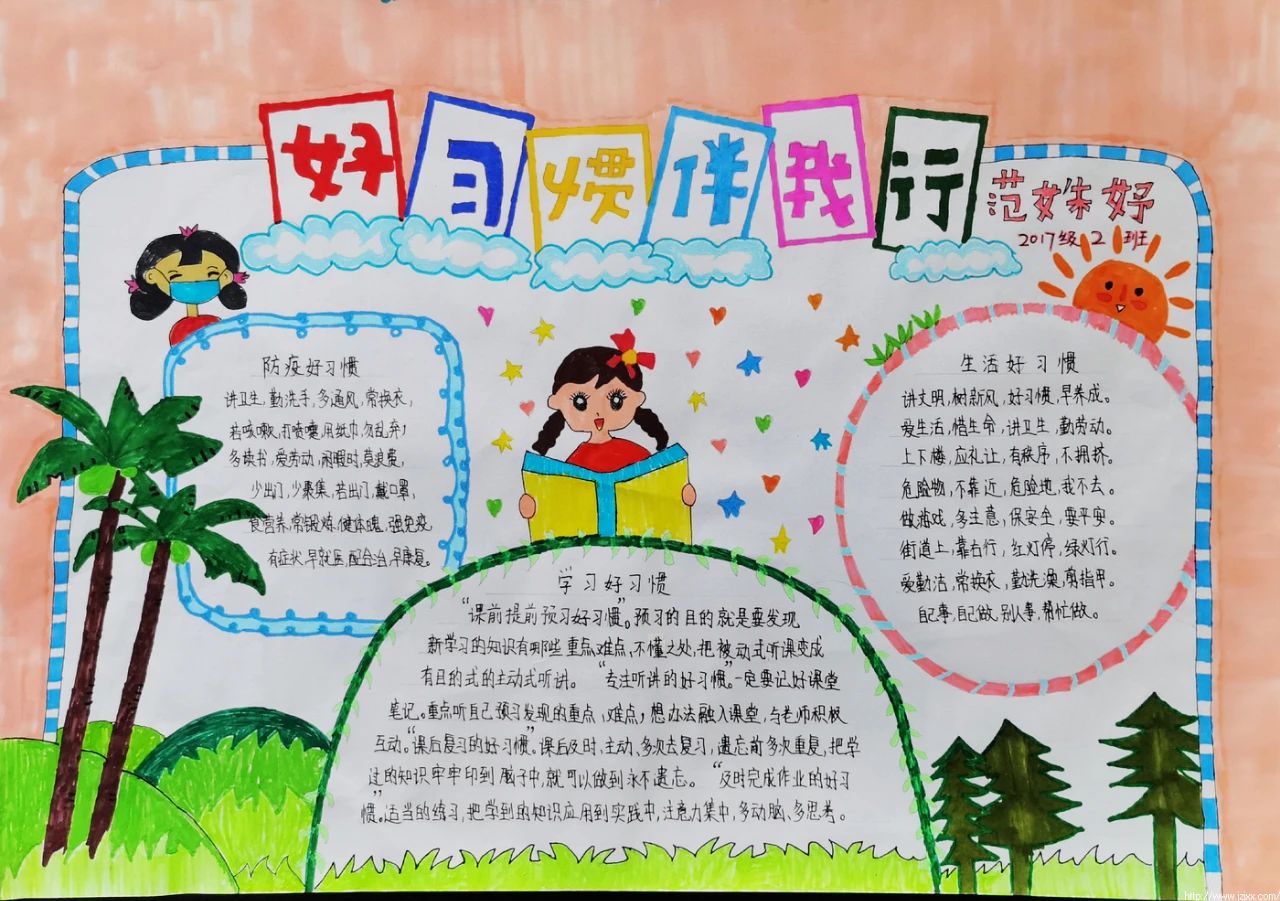 好习惯伴我行
范姝妤
2017级 2 班
防疫好习惯
讲卫生,勤洗手,多通风,常换衣,
若咳嗽,打喷嚏,用纸巾,勿乱弃;
多读书,爱劳动,闲暇时,莫浪费,
少出门,少聚集,若出门,戴口罩,
食营养,常锻炼,健体魄,强免疫,
有症状,早就医,配合治,早康复。
生活好习惯
讲文明,树新风,好习惯,早养成。
爱生活,惜生命,讲卫生,勤劳动。
上下楼,应礼让,有秩序,不拥挤。
危险物,不靠近,危险地,我不去。
做游戏,多注意,保安全,要平安。
街道上,靠右行,红灯停,绿灯行。
爱勤洁,常换衣,勤洗澡,剪指甲。
自己事,自己做,别人事,帮忙做。
学习好习惯
“课前提前预习好习惯”。预习的目的就是要发现
新学习的知识有哪些重点、难点,不懂之处,把被动式听课变成
有目的式的主动式听讲。“专注听讲的好习惯”。一定要记好课堂
笔记。重点听自己预习发现的重点、难点,想办法融入课堂,与老师积极
互动。“课后复习的好习惯”课后及时、主动、多次去复习,遗忘前多次重复,把学
过的知识牢牢印到脑子中,就可以做到永不遗忘。“及时完成作业的好习
惯”。适当的练习,把学到的知识应用到实践中,注意力集中,多动脑、多思考。
http://www.izjxx.com/